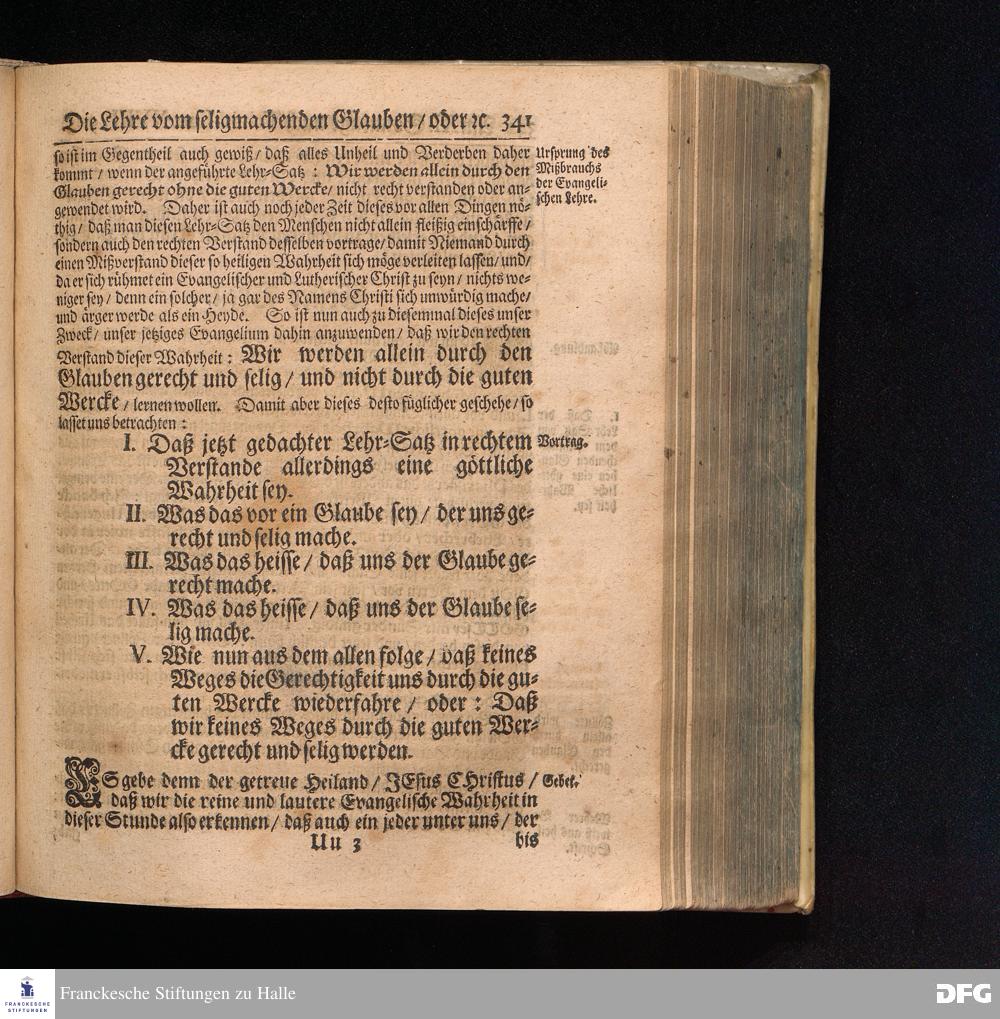 Die Lehre vom seligmachenden Glauben / oder ꝛc. 341
so ist im Gegentheil auch gewiß / daß alles Unheil und Verderben daher
kommt / wenn der angeführte Lehr-Satz : Wir werden allein durch den
Glauben gerecht ohne die guten Wercke / nicht recht verstanden oder an-
gewendet wird. Daher ist auch noch jeder Zeit dieses vor allen Dingen nö-
thig / daß man diesen Lehr-Satz den Menschen nicht allein fleißig einschärffe /
sondern auch den rechten Verstand desselben vortrage / damit Niemand durch
einen Mißverstand dieser so heiligen Wahrheit sich möge verleiten lassen / und /
da er sich rühmet ein Evangelischer und Lutherischer Christ zu seyn / nichts we-
niger sey / denn ein solcher / ja gar des Namens Christi sich unwürdig mache /
und ärger werde als ein Heyde. So ist nun auch zu diesemmal dieses unser
Zweck / unser jetziges Evangelium dahin anzuwenden / daß wir den rechten
Verstand dieser Wahrheit : Wir werden allein durch den
Glauben gerecht und selig / und nicht durch die guten
Wercke / lernen wollen. Damit aber dieses desto füglicher geschehe / so
lasset uns betrachten :
Ursprung des
Mißbrauchs
der Evangeli-
schen Lehre.
I. Daß jetzt gedachter Lehr-Satz in rechtem
Verstande allerdings eine göttliche
Wahrheit sey.
Vortrag.
II. Was das vor ein Glaube sey / der uns ge-
recht und selig mache.
III. Was das heisse / daß uns der Glaube ge-
recht mache.
IV. Was das heisse / daß uns der Glaube se-
lig mache.
V. Wie nun aus dem allen folge / daß keines
Weges die Gerechtigkeit uns durch die gu-
ten Wercke wiederfahre / oder : Daß
wir keines Weges durch die guten Wer-
cke gerecht und selig werden.
ES gebe denn der getreue Heiland / JEsus CHristus /
daß wir die reine und lautere Evangelische Wahrheit in
dieser Stunde also erkennen / daß auch ein jeder unter uns / der
Gebet.
Uu 3 bis
FRANCKESCHE
STIFTUNGEN
Franckesche Stiftungen zu Halle
DFG